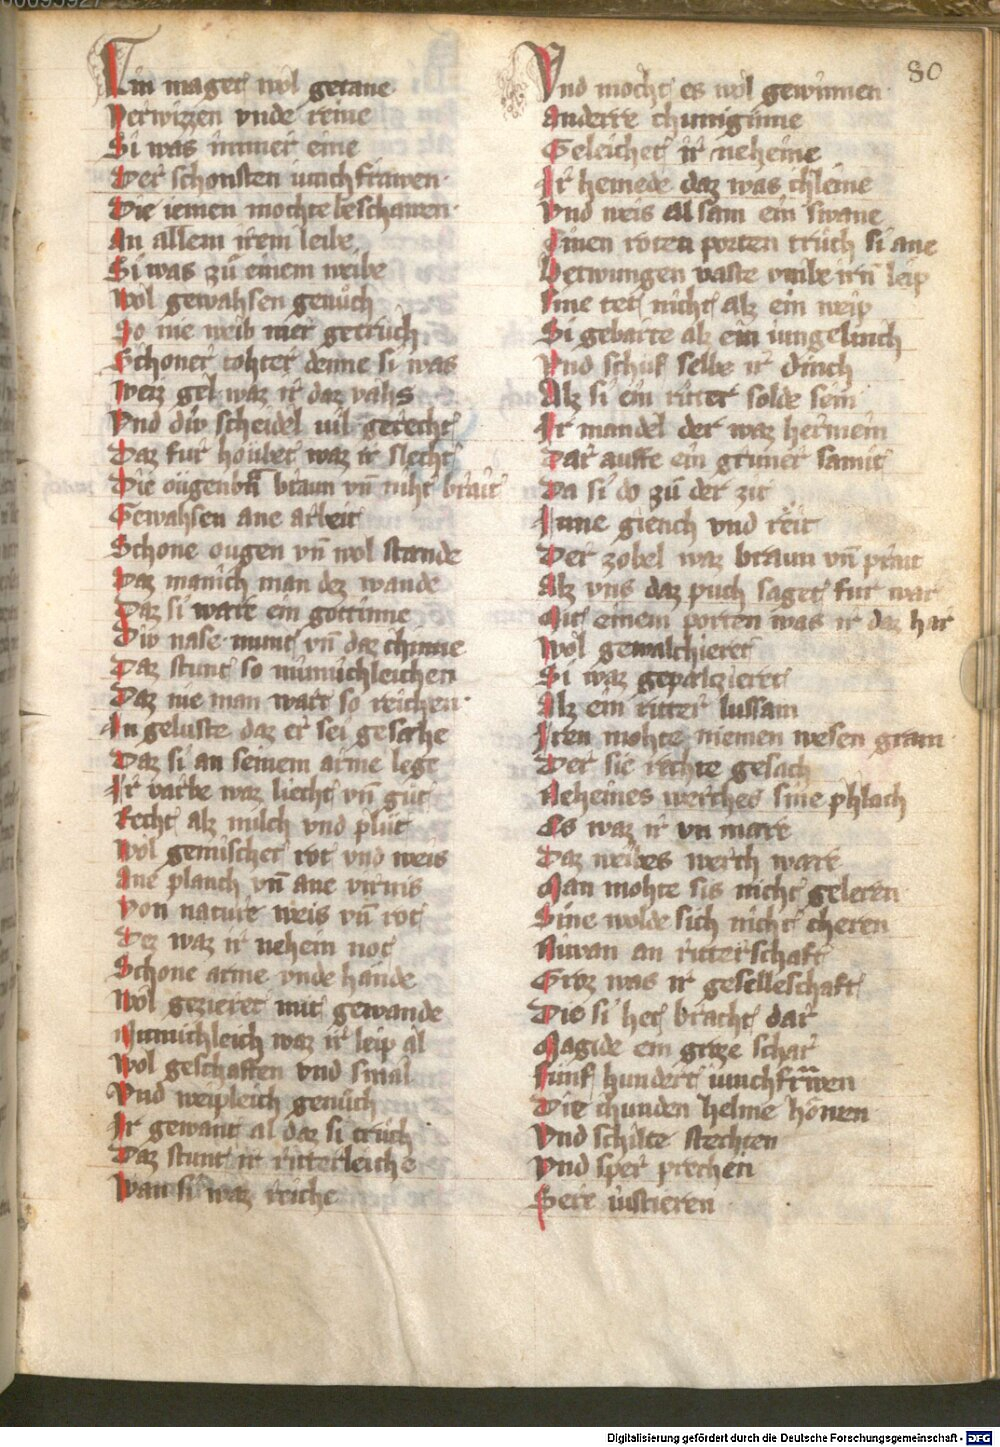 80
Ein maget wol getane
Verwizzen vnde reine
Si was immer eine
Der schonsten iunchfrawen
Die iemen mochte beschawen
An allem irem leibe
Si was zů einem weibe
Wol gewahsen genůch
So nie weib mer getrůch
Schoner tohter denne si was
Werz gel waz ir daz vahs
Vnd div scheidel uil gerecht
Daz fur houbet waz ir slecht
Die ougenbra braun vn̄ niht brait
Gewahsen ane arbeit
Schone ougen vn̄ wol stande
Daz manich man dez wande
Daz si ware ein gottinne
Div nase munt vn̄ daz chinne
Daz stunt so minnichleichen
Daz nie man wart so reichen
In geluste daz er sei gesæhe
Daz si an seinem arme lege
Ir varbe waz liecht vn̄ gůt
Recht alz milch vnd plůt
Wol gemischet rot vnd weis
Ane planch vn̄ ane virnis
Von nature weis vn̄ rot
Dez waz ir nehein not
Schone arme vnde hande
Wol gezieret mit gewande
Minnichleich waz ir leip al
Wol geschaffen vnd smal
Vnd weipleich genůch
Ir gewant al daz si trůch
Daz stunt ir ritterleiche
Wan si waz reiche
Vnd mocht es wol gewinnen
Anderre chuniginne
Geleichet ir neheine
Ir hemede daz was chleine
Vnd weis alsam ein swane
Einen roten porten trůch si ane
Betwungen vaste vmbe irn leip
Sine tet nicht alz ein weip
Si gebarte alz ein iungelinch
Vnd schůf selbe ir dinch
Alz si ein ritter solde sein
Ir mandel der waz hermein
Dar auffe ein gruner samit
Da si do zů der zit
Inne giench vnd reit
Der zobel waz braun vn̄ prait
Alz vns daz puch saget fur war
Mit einem porten was ir daz har
Wol gewalchieret
Si waz gepalzieret
Alz ein ritter lussam
Iren mohte niemen wesen gram
Der sie rechte gesach
Neheines werches sine phlach
Es waz ir vn mare
Daz weibes werch ware
Man mohte sis nicht geleren
Sine wolde sich nicht cheren
Niwan an ritterschaft
Groz was ir geselleschaft
Die si het bracht dar
Magide ein groze schar
Funf hundert iunchfrawen
Die chunden helme howen
Vnd schilte stechten
Vnd sper prechen
Sere iustieren
Digitalisierung gefördert durch die Deutsche Forschungsgemeinschaft - DFG